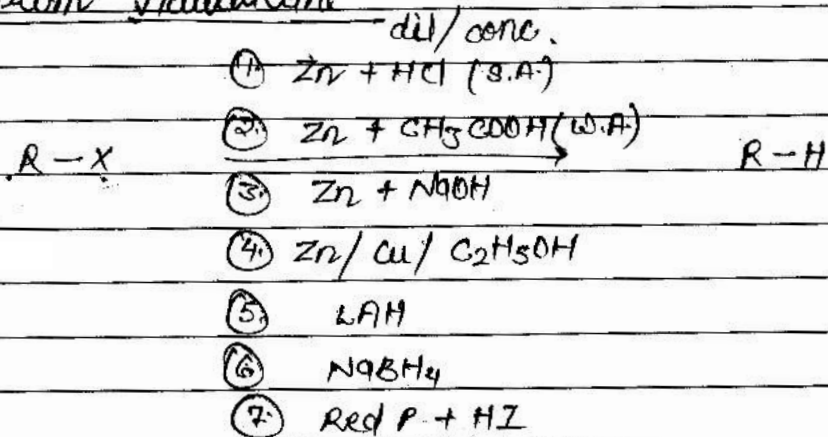 dil/conc.
① Zn + HCl (S.A.)
② Zn + CH3COOH (W.A.)
R - X → R - H
③ Zn + NaOH
④ Zn/Cu/C2H5OH
⑤ LAH
⑥ NaBH4
⑦ Red P + HI